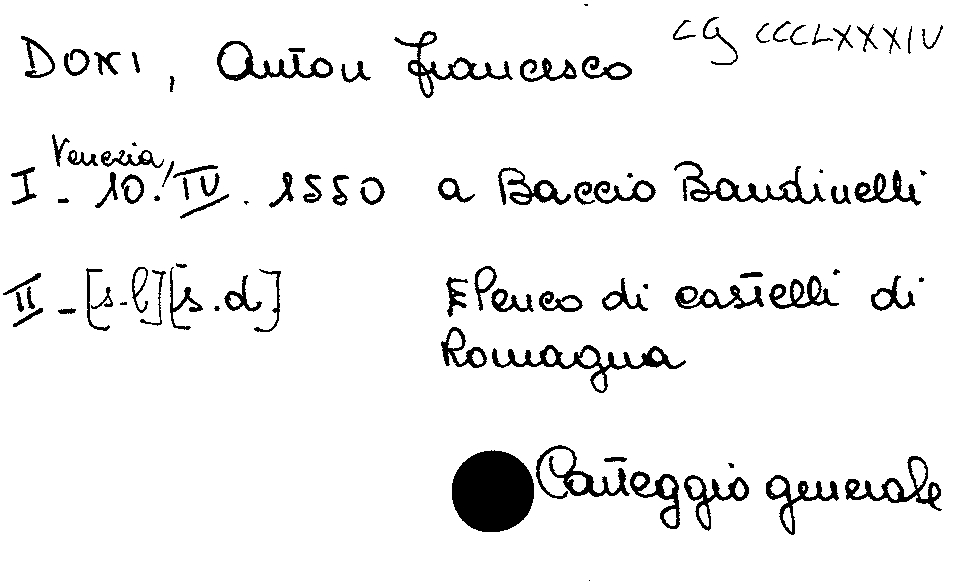 DONI, Anton Francesco CG CCCLXXXIV
I - Venezia, 10.IV.1550 a Baccio Bandinelli
II - [s.l][s.d] Elenco di castelli di
Romagna
Carteggio generale